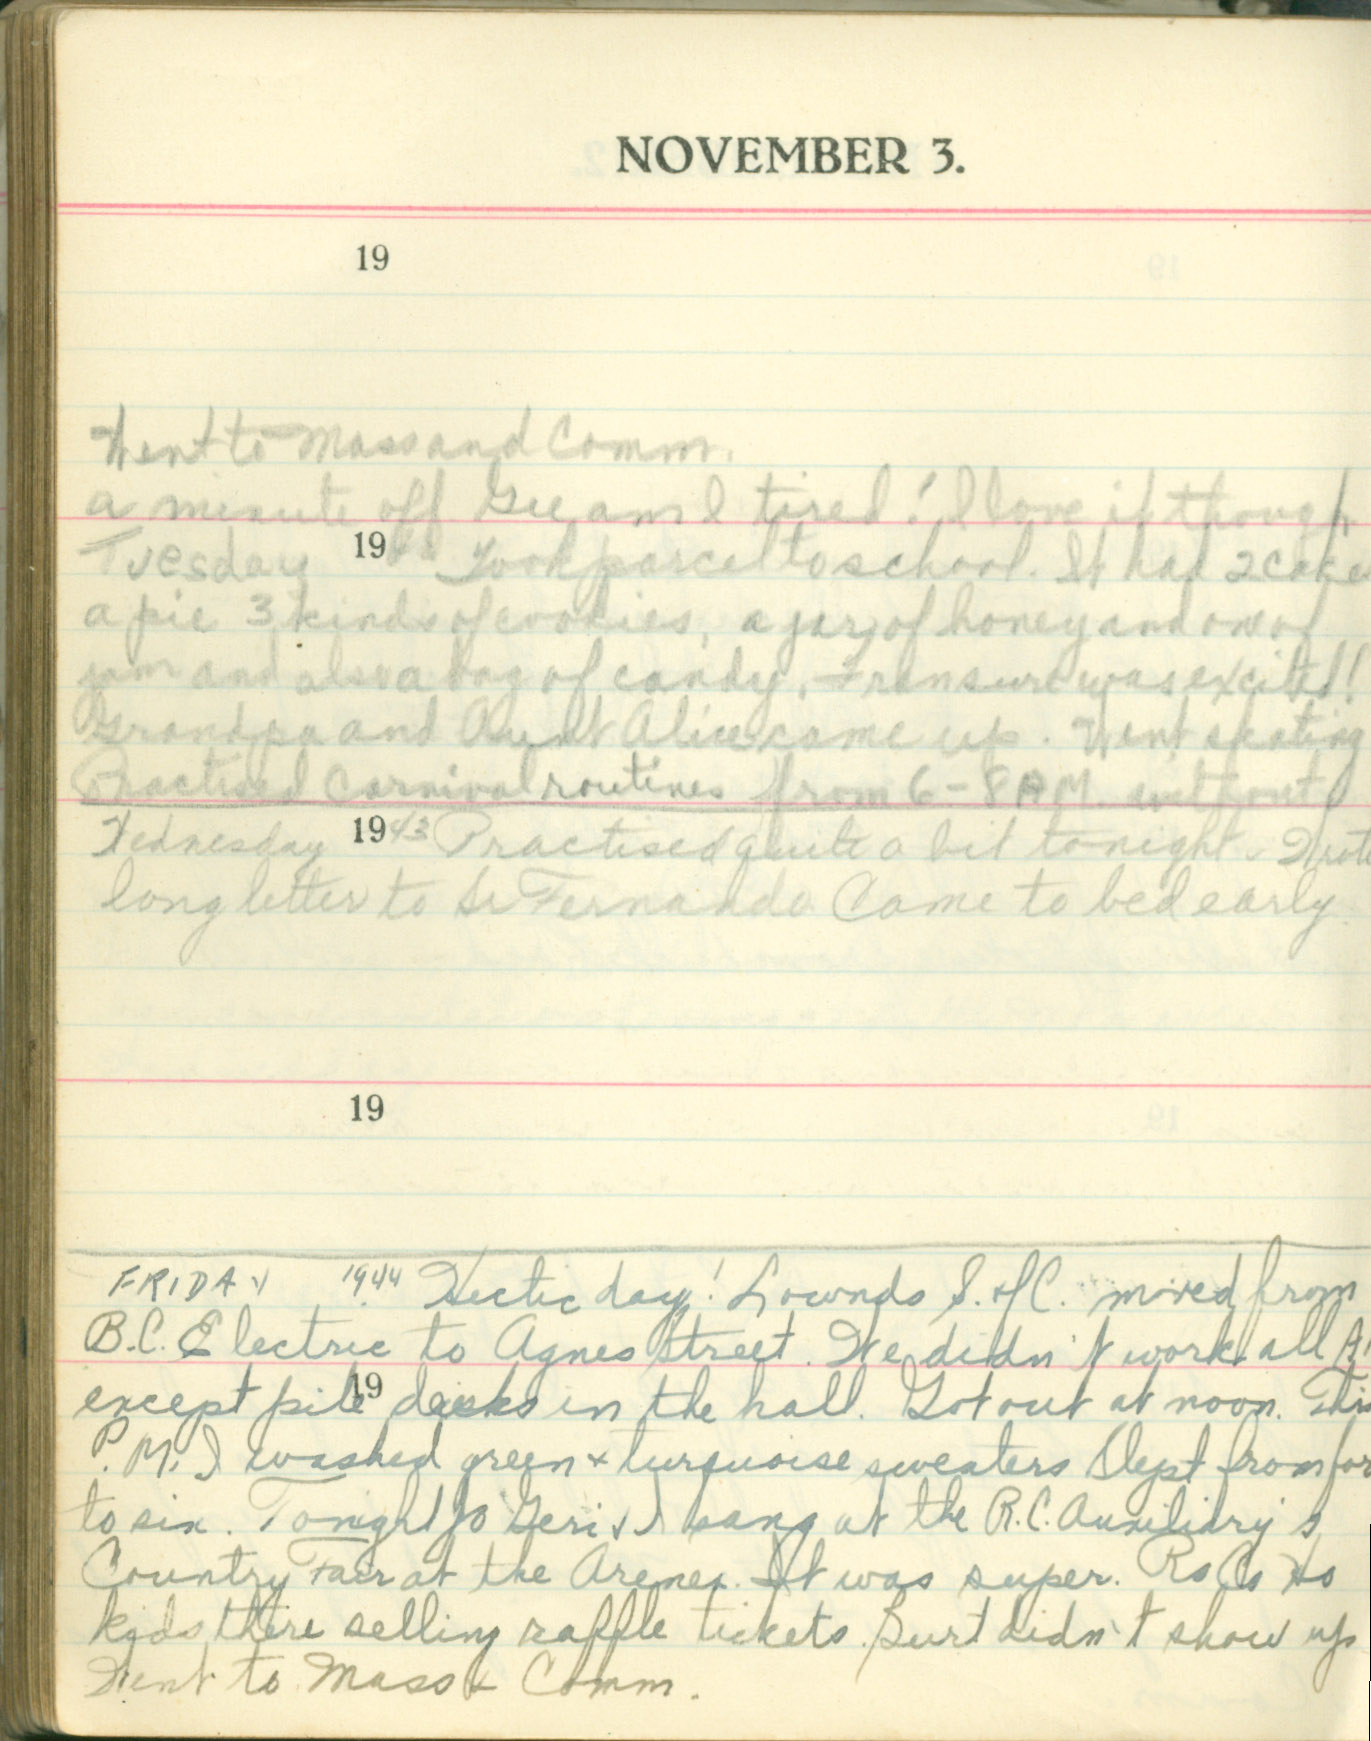 NOVEMBER 3.
19
Went to Mass and Comm.
a minute off Gee am I tired! I love it though
Tuesday 19 Took parcel to school. It had 2 cakes
a pie 3 kinds of cookies, a jar of honey and one of
jam and also a bag of candy. Fran sure was excited!
Grandpa and Aunt Alice came up. Went skating
Practised Carnival routines from 6-8 AM without
Wednesday 1943 Practised quite a bit tonight. Wrote
long letter to Sr Fernanda Came to bed early
19
FRIDAY 1944 Hectic day! Lownds S. of C. moved from
B.C. Electric to Agnes Street. We didn't work all
19
except pile desks in the hall. Got out at noon. This
P.M. I washed green & turquoise sweaters Slept from
to six. Tonight Jo Geri & I sang at the R.C. Auxiliary's
Country Fair at the Arenex. It was super.
kids there selling raffle tickets. Burt didn't show up
Went to Mass & Comm.